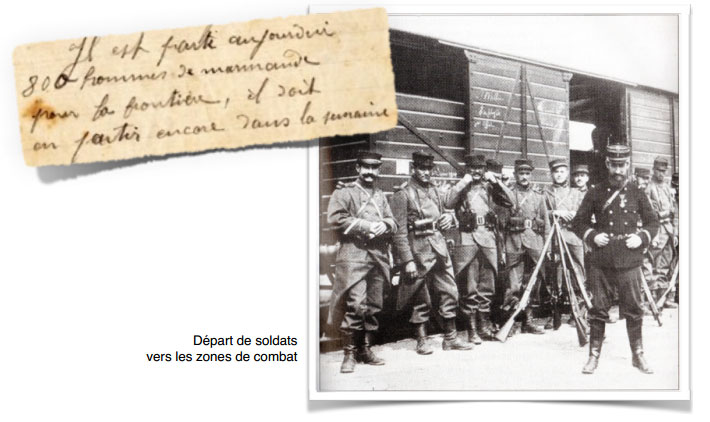 Il est parti aujourdui
800 hommes de marmande
pour la frontière, il doit
en partir encore dans la semaine
Départ de soldats
vers les zones de combat